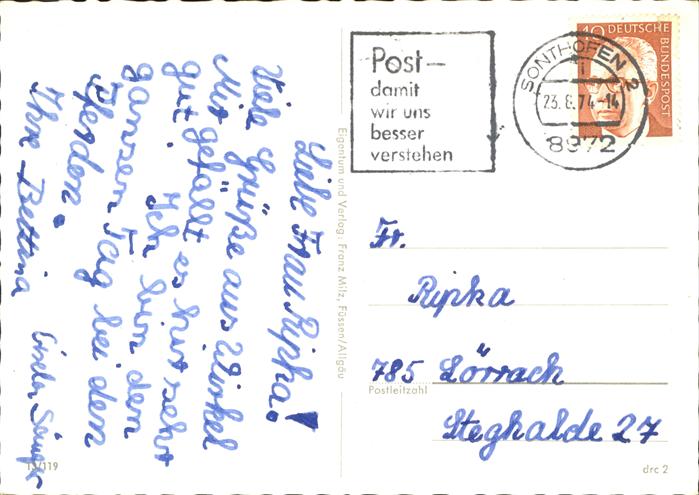 Liebe Frau Ripka!
Viele Grüße aus Winkel
Mir gefällt es hir sehr
gut. Ich bin den
ganzen Tag bei den
Pferden.
Ihre Bettina
13/119
Eigentum und Verlag: Franz Milz, Füssen/Allgäu
Post–
damit
wir uns
besser
verstehen
SONTHOFEN 2
23.8.74-14
8972
40 DEUTSCHE
BUNDESPOST
Fr.
Ripka
785 Lörrach
Postleitzahl
Steghalde 27
drc 2